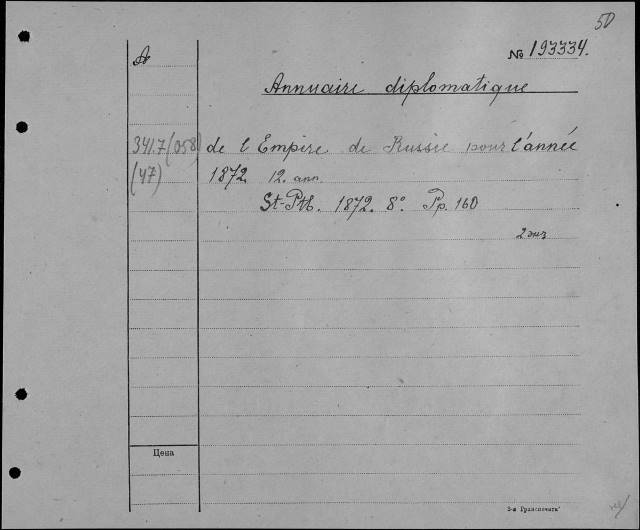 50
A
№ 193334.
Annuaire diplomatique
341.7(058) de l'Empire de Russie pour l'année
(47) 1872. 12. ann.
St-Ptb. 1872. 8°. Pp. 160
2 экз
Цена